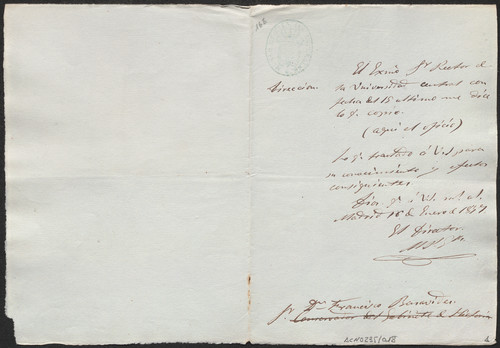 166
Direccion
El Exmo Sr Rector de
la Universidad central con
fecha del 15 ultimo me dice
lo q. copio.
(aqui el oficio)
Lo q. traslado á Vd. para
su conocimiento y efectos
consiguientes.
Dios g. á Vd. m. a.
Madrid 16 de Enero de 1877
El Director
Sr. Dn. Francisco Benavides
Conservador del Gabinete de Historia
ACN0235/018